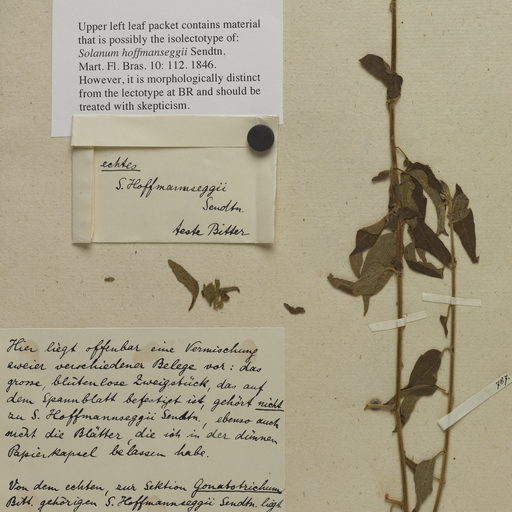 Upper left leaf packet contains material
that is possibly the isolectotype of:
Solanum hoffmanseggii Sendtn.
Mart. Fl. Bras. 10: 112. 1846.
However, it is morphologically distinct
from the lectotype at BR and should be
treated with skepticism.
echtes
S. Hoffmannseggii
Sendtn.
teste Bitter
Hier liegt offenbar eine Vermischung
zweier verschiedener Belege vor: das
grosse, blütenlose Zweigstück, das auf
dem Spannblatt befestigt ist, gehört nicht
zu S. Hoffmannseggii Sendtn., ebenso auch
nicht die Blätter, die ich in der dünnen
Papierkapsel belassen habe.
Von dem echten, zur Sektion Gonatotrichum
Bitt. gehörigen S. Hoffmannseggii Sendtn. liegt